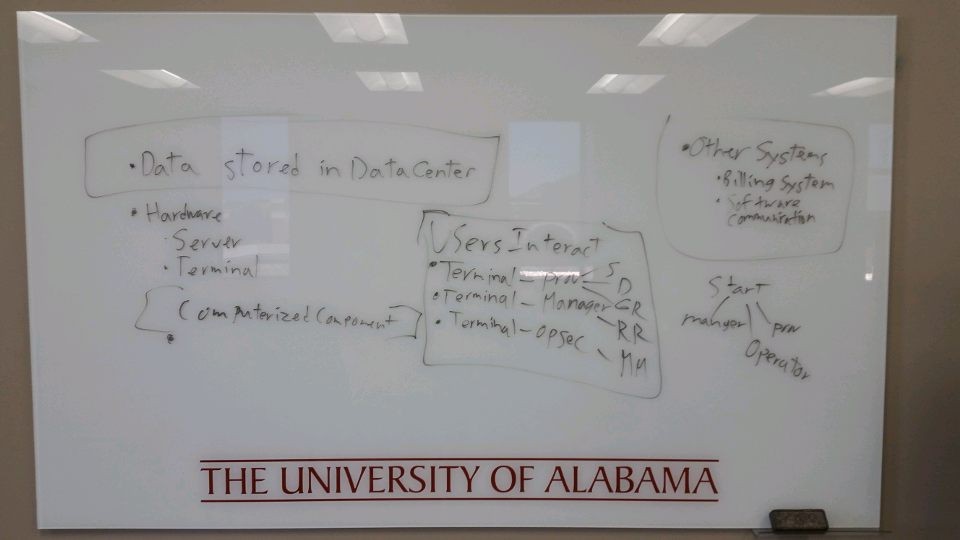 • Data stored in DataCenter
• Hardware
· Server
· Terminal
[Computerized Component]
•
Users Interact
• Terminal – prov
S
D
• Terminal – Manager
GR
RR
• Terminal – Opsec
MM
• Other Systems
• Billing System
• Software
Communication
Start
manger
prov
Operator
THE UNIVERSITY OF ALABAMA